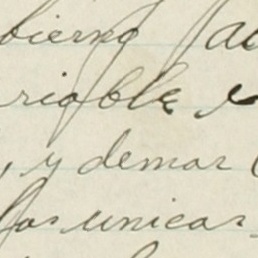 bierno
riable
, y demas
las unicas